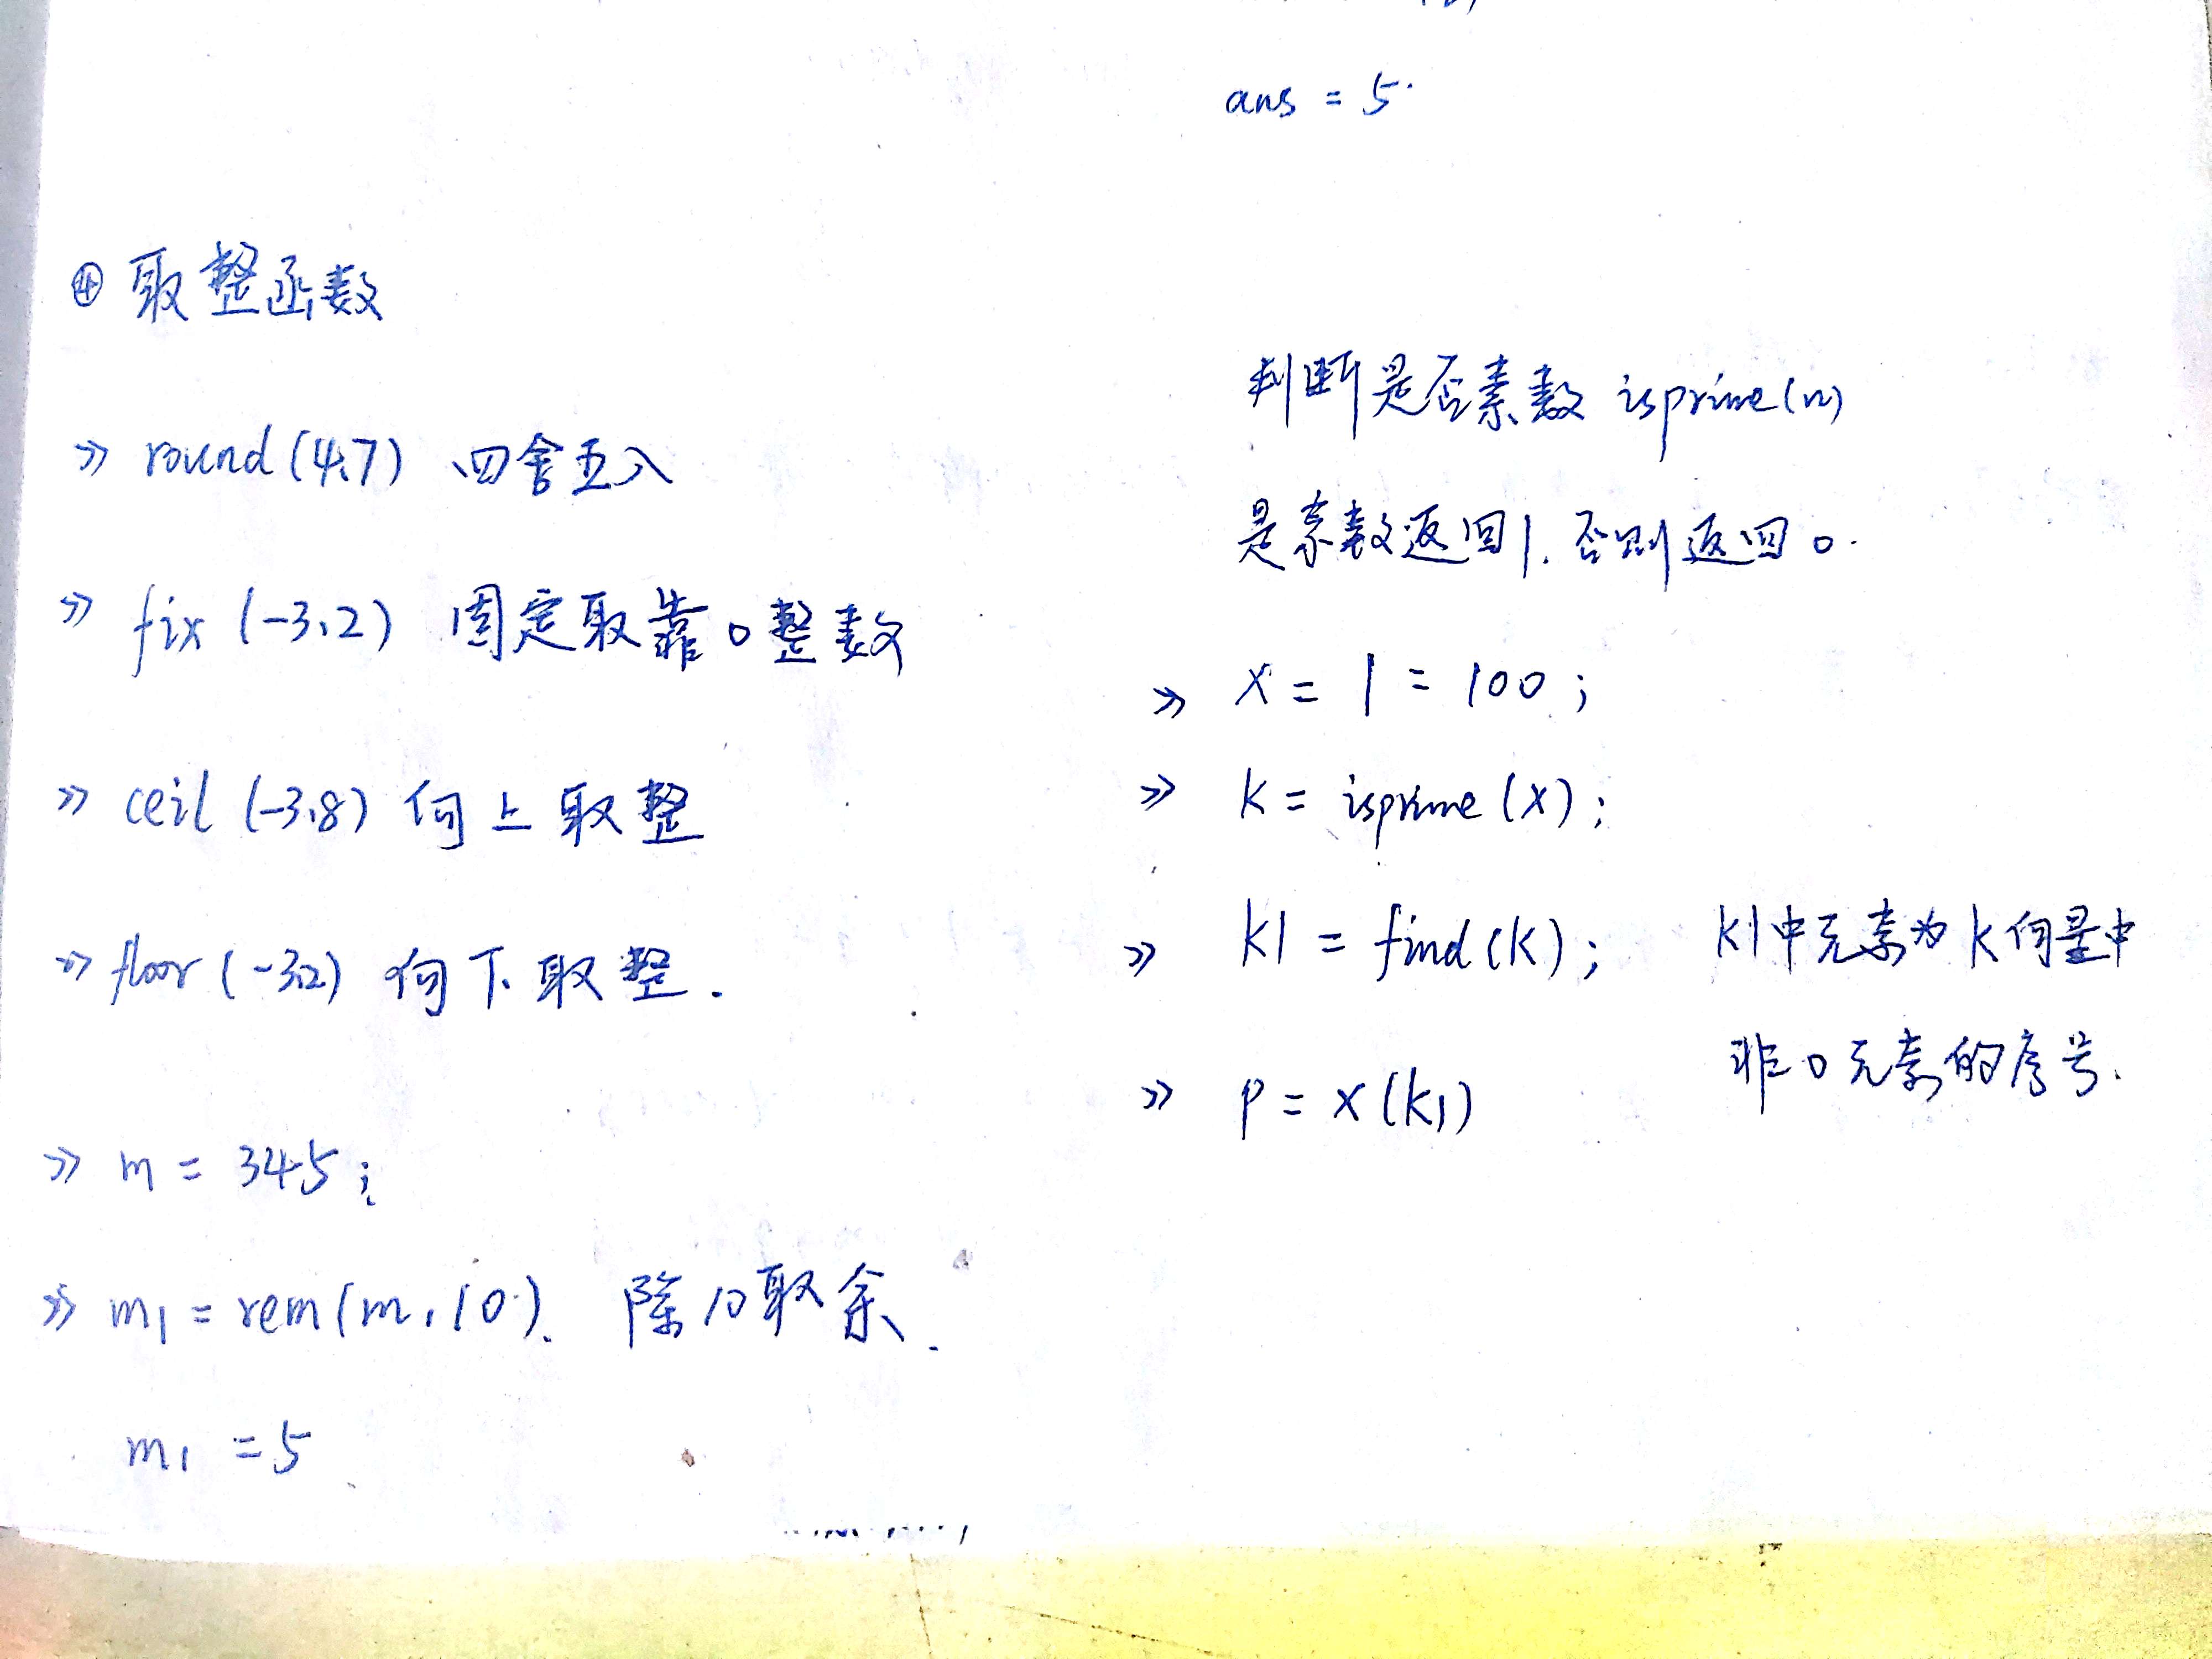 ans = 5.
④ 取整函数
>> round(4.7) 四舍五入
>> fix (-3.2) 固定取靠0整数
>> ceil (-3.8) 何上取整
>> floor (-3.2) 何下取整.
>> m = 345;
>> m1 = rem(m,10). 除10取余.
m1 = 5
判断是否素数 isprime(n)
是素数返回1.否则返回0.
>> x = 1 = 100;
>> k = isprime(x);
>> k1 = find(k); k1中元素为k何量中
非0元素的序号.
>> p = x(k1)